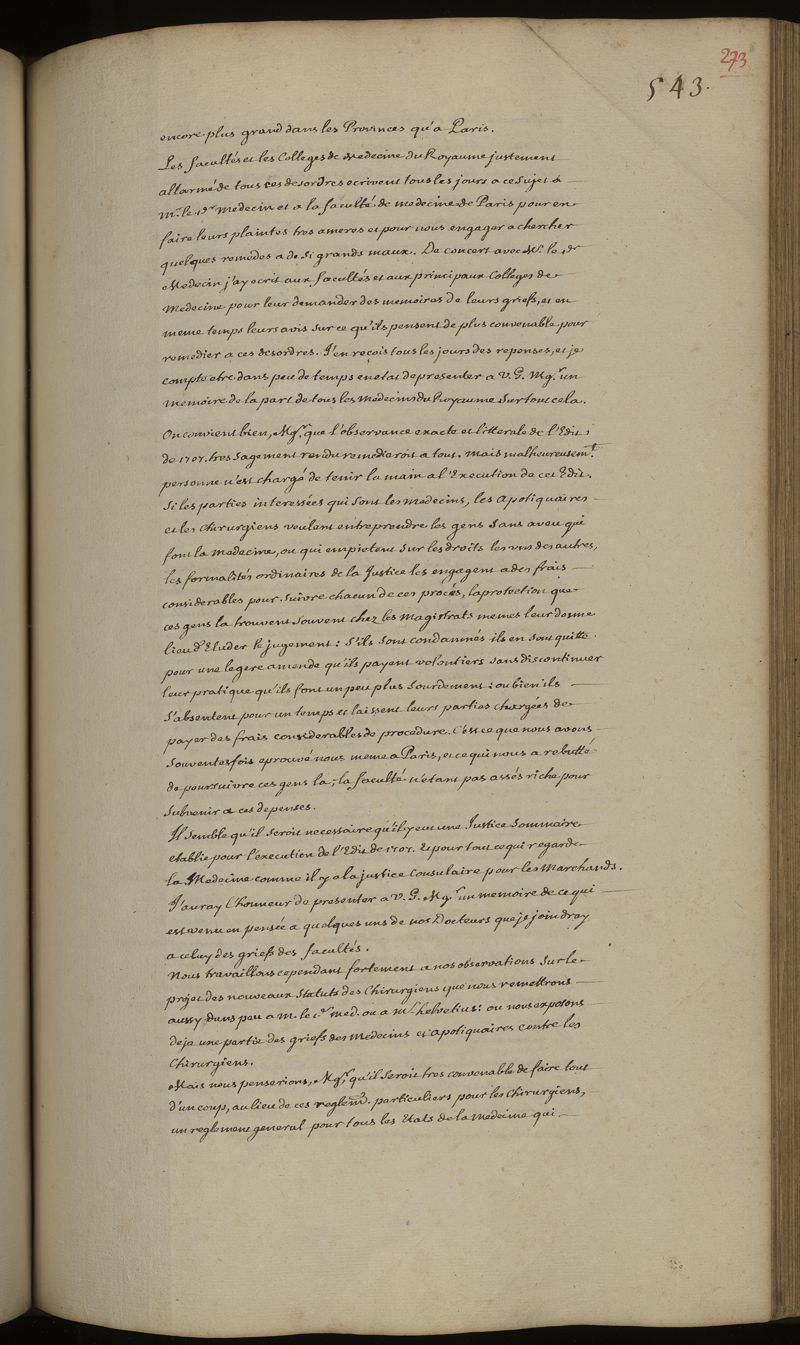 273
543.
encore plus grand dans les Provinces qu'a Paris.
Les facultés et les Colleges de Medecine du Royaume justement
allarmé de tous ces desordres ecrivent tous les jours a ce sujet a
Mr. le 1er Medecin et a la faculté de medecine de Paris pour en
faire leurs plaintes tres ameres et pour nous engager a chercher
quelques remedes a de si grands maux. De concert avec Mr. le 1er
Medecin j'ay ecrit aux facultés et aux principaux Colleges de
Medecine pour leur demander des memoires de leurs griefs, et en
meme temps leurs avis sur ce qu'ils pensent de plus convenable pour
remedier a ces desordres. J'en reçois tous les jours des reponses, et je
compte etre dans peu de temps en etat de presenter a V. G. Mgr. un
memoire de la part de tous les Medecins du Royaume sur tout cela.
On convient bien, Mgr. que l'observance exacte et litterale de l'Edit
de 1707. tres sagement rendu remedieroit a tout. Mais malheureusemt.
personne n'est chargé de tenir la main a l'Execution de cet Edit.
Si les parties interessées qui sont les Medecins, les Apotiquaires
et les Chirurgiens veulent entreprendre les gens sans aveu qui
font la Medecine, ou qui empietent sur les droits les uns des autres,
les formalités ordinaires de la Justice les engagent a des frais
considerables pour suivre chacun de ces procés, la protection que
ces gens la trouvent souvent chez les Magistrats memes leur donne
lieu d'Eluder le jugement: s'ils sont condamnés ils en sont quitte
pour une legere amende qu'ils payent volontiers sans discontinuer
leur pratique qu'ils font un peu plus sourdement: ou bien ils
s'absentent pour un temps et laissent leurs parties chargées de
payer des frais considerables de procedure. C'est ce que nous avons
souventesfois eprouvé nous meme a Paris, et ce qui nous a rebutté
de poursuivre ces gens la; la faculté n'etant pas assés riche pour
subvenir a ces depenses.
Il semble qu'il seroit necessaire qu'il y eut une Justice sommaire
etablie pour l'execution de l'Edit de 1707. et pour tout ce qui regarde
la Medecine comme il y a la justice Consulaire pour les Marchands.
J'auray l'honneur de presenter a V. G. Mgr un memoire de ce qui
est venu en pensée a quelques uns de nos Docteurs que je joindray
a celuy des griefs des facultés.
Nous travaillons cependant fortement a nos observations sur le
projet des nouveaux Statuts des Chirurgiens que nous remettrons
aussy dans peu a M. le 1er Med. ou a Mr. helvetius: ou nous exposons
deja une partie des griefs des Medecins et apotiquaires contre les
Chirurgiens.
Mais nous penserions, Mgr. qu'il seroit tres convenable de faire tout
d'un coup, au lieu de ces reglemts. particuliers pour les Chirurgiens,
un reglement general pour tous les Etats de la Medecine qui